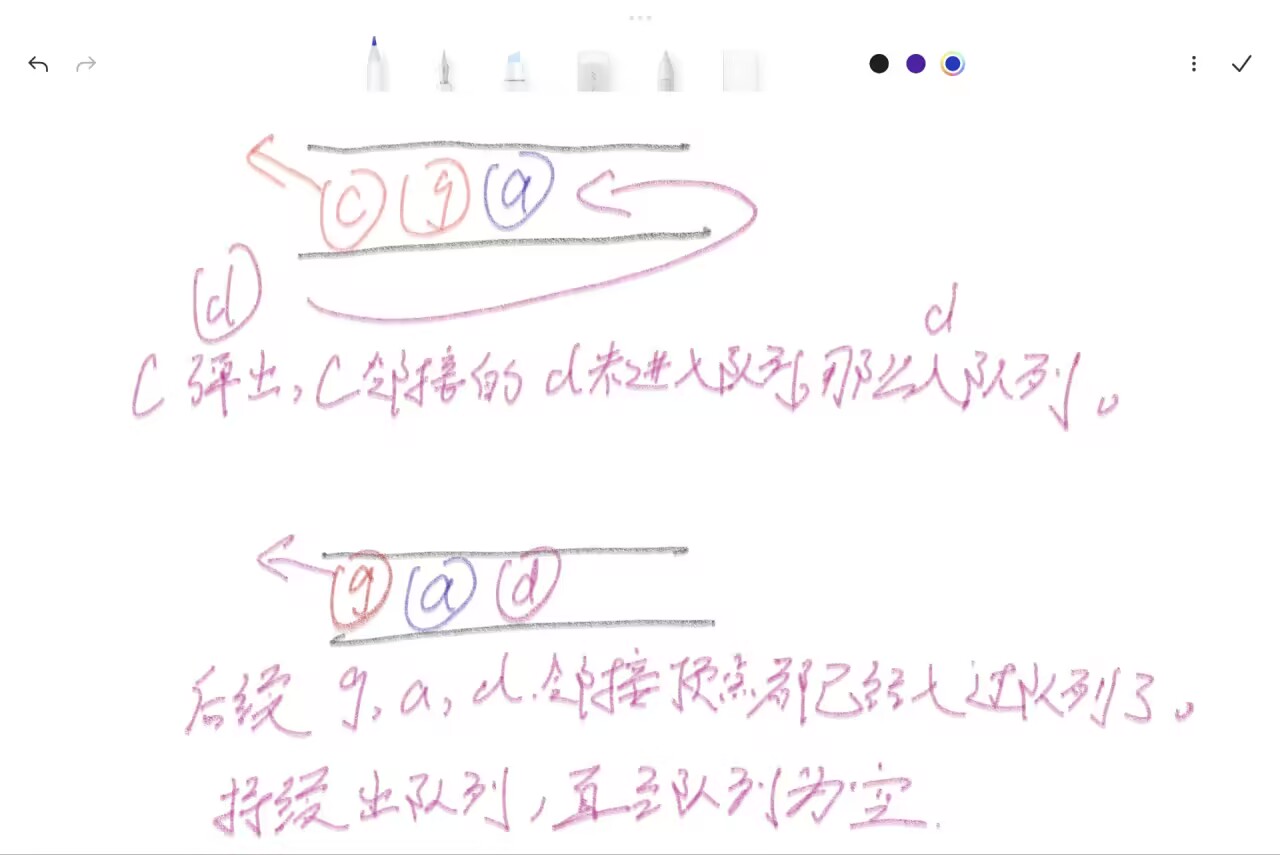 c g a
d
d
C弹出，C邻接的d未进入队列，那么入队列。
g a d
后续 g, a, d.邻接顶点都已经入过队列了。
持续出队列，直至队列为空.